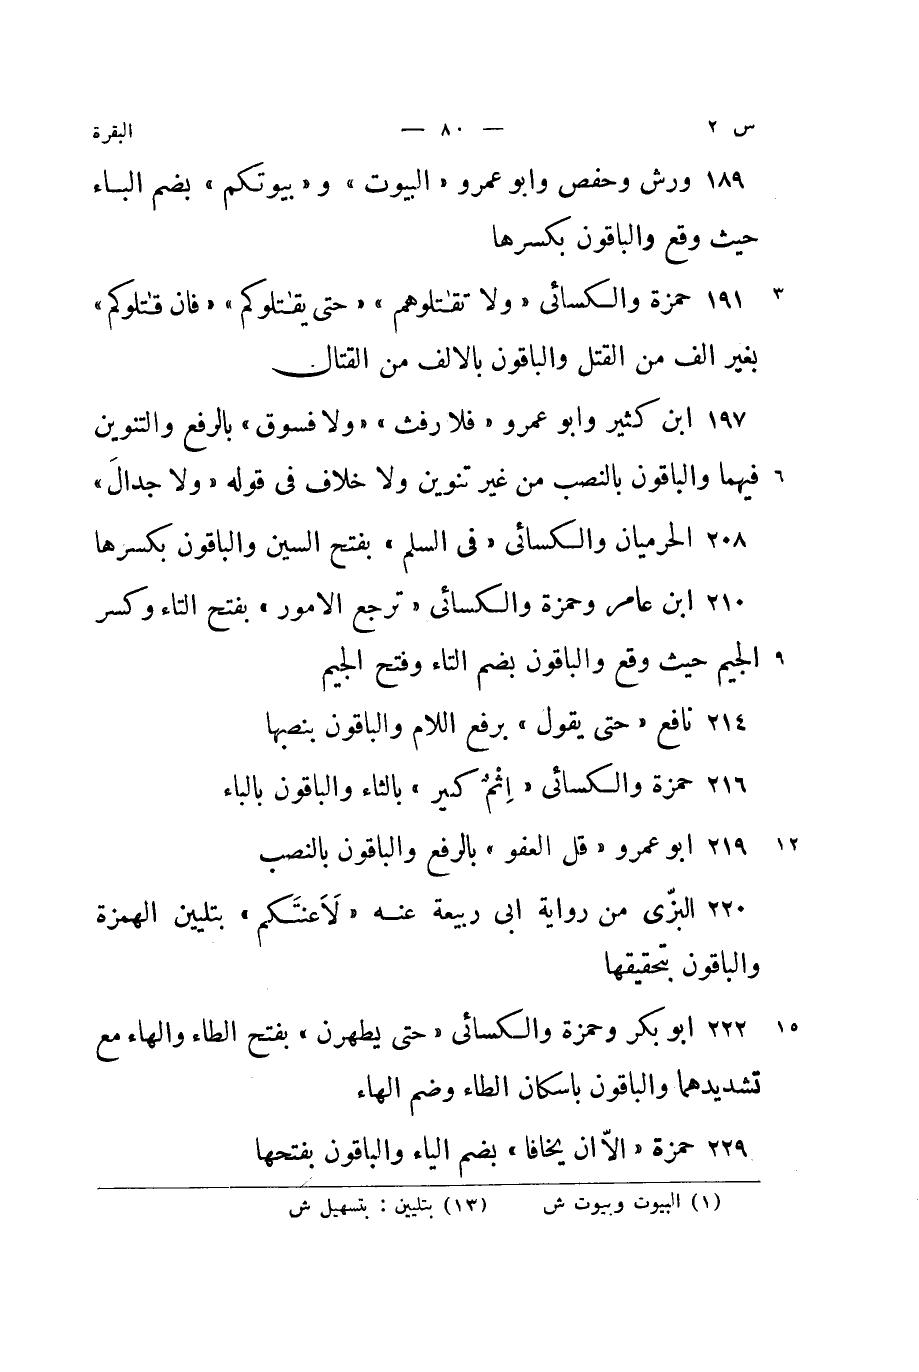 س ٢ — ٨٠ — البقرة
١٨٩ ورش وحفص وابو عمرو « البيوت » و « بيوتكم » بضم البـاء
حيث وقع والباقون بكسرها
٣ ١٩١ حمزة والكسائى « ولا تقٰتلوهم » « حتى يقٰتلوكم » « فان قٰتلوكم »
بغير الف من القتل والباقون بالالف من القتال
١٩٧ ابن كثير وابو عمرو « فلا رفث » « ولا فسوق » بالرفع والتنوين
٦ فيهما والباقون بالنصب من غير تنوين ولا خلاف فى قوله « ولا جدالَ »
٢٠٨ الحرميان والكسائى « فى السلم » بفتح السين والباقون بكسرها
٢١٠ ابن عامر وحمزة والكسائى « ترجع الامور » بفتح التاء وكسر
٩ الجيم حيث وقع والباقون بضم التاء وفتح الجيم
٢١٤ نافع « حتى يقول » برفع اللام والباقون بنصبها
٢١٦ حمزة والكسائى « اِثْمٌ كبير » بالثاء والباقون بالباء
١٢ ٢١٩ ابو عمرو « قل العفو » بالرفع والباقون بالنصب
٢٢٠ البزّى من رواية ابى ربيعة عنـه « لَاَعنتَـكم » بتليين الهمزة
والباقون بتحقيقها
١٥ ٢٢٢ ابو بكر وحمزة والكسائى « حتى يطهرن » بفتح الطاء والهاء مع
تشديدهما والباقون باسكان الطاء وضم الهاء
٢٢٩ حمزة « الاّ ان يخافا » بضم الياء والباقون بفتحها
(١) البيوت وبيوت ش (١٣) بتليين : بتسهيل ش